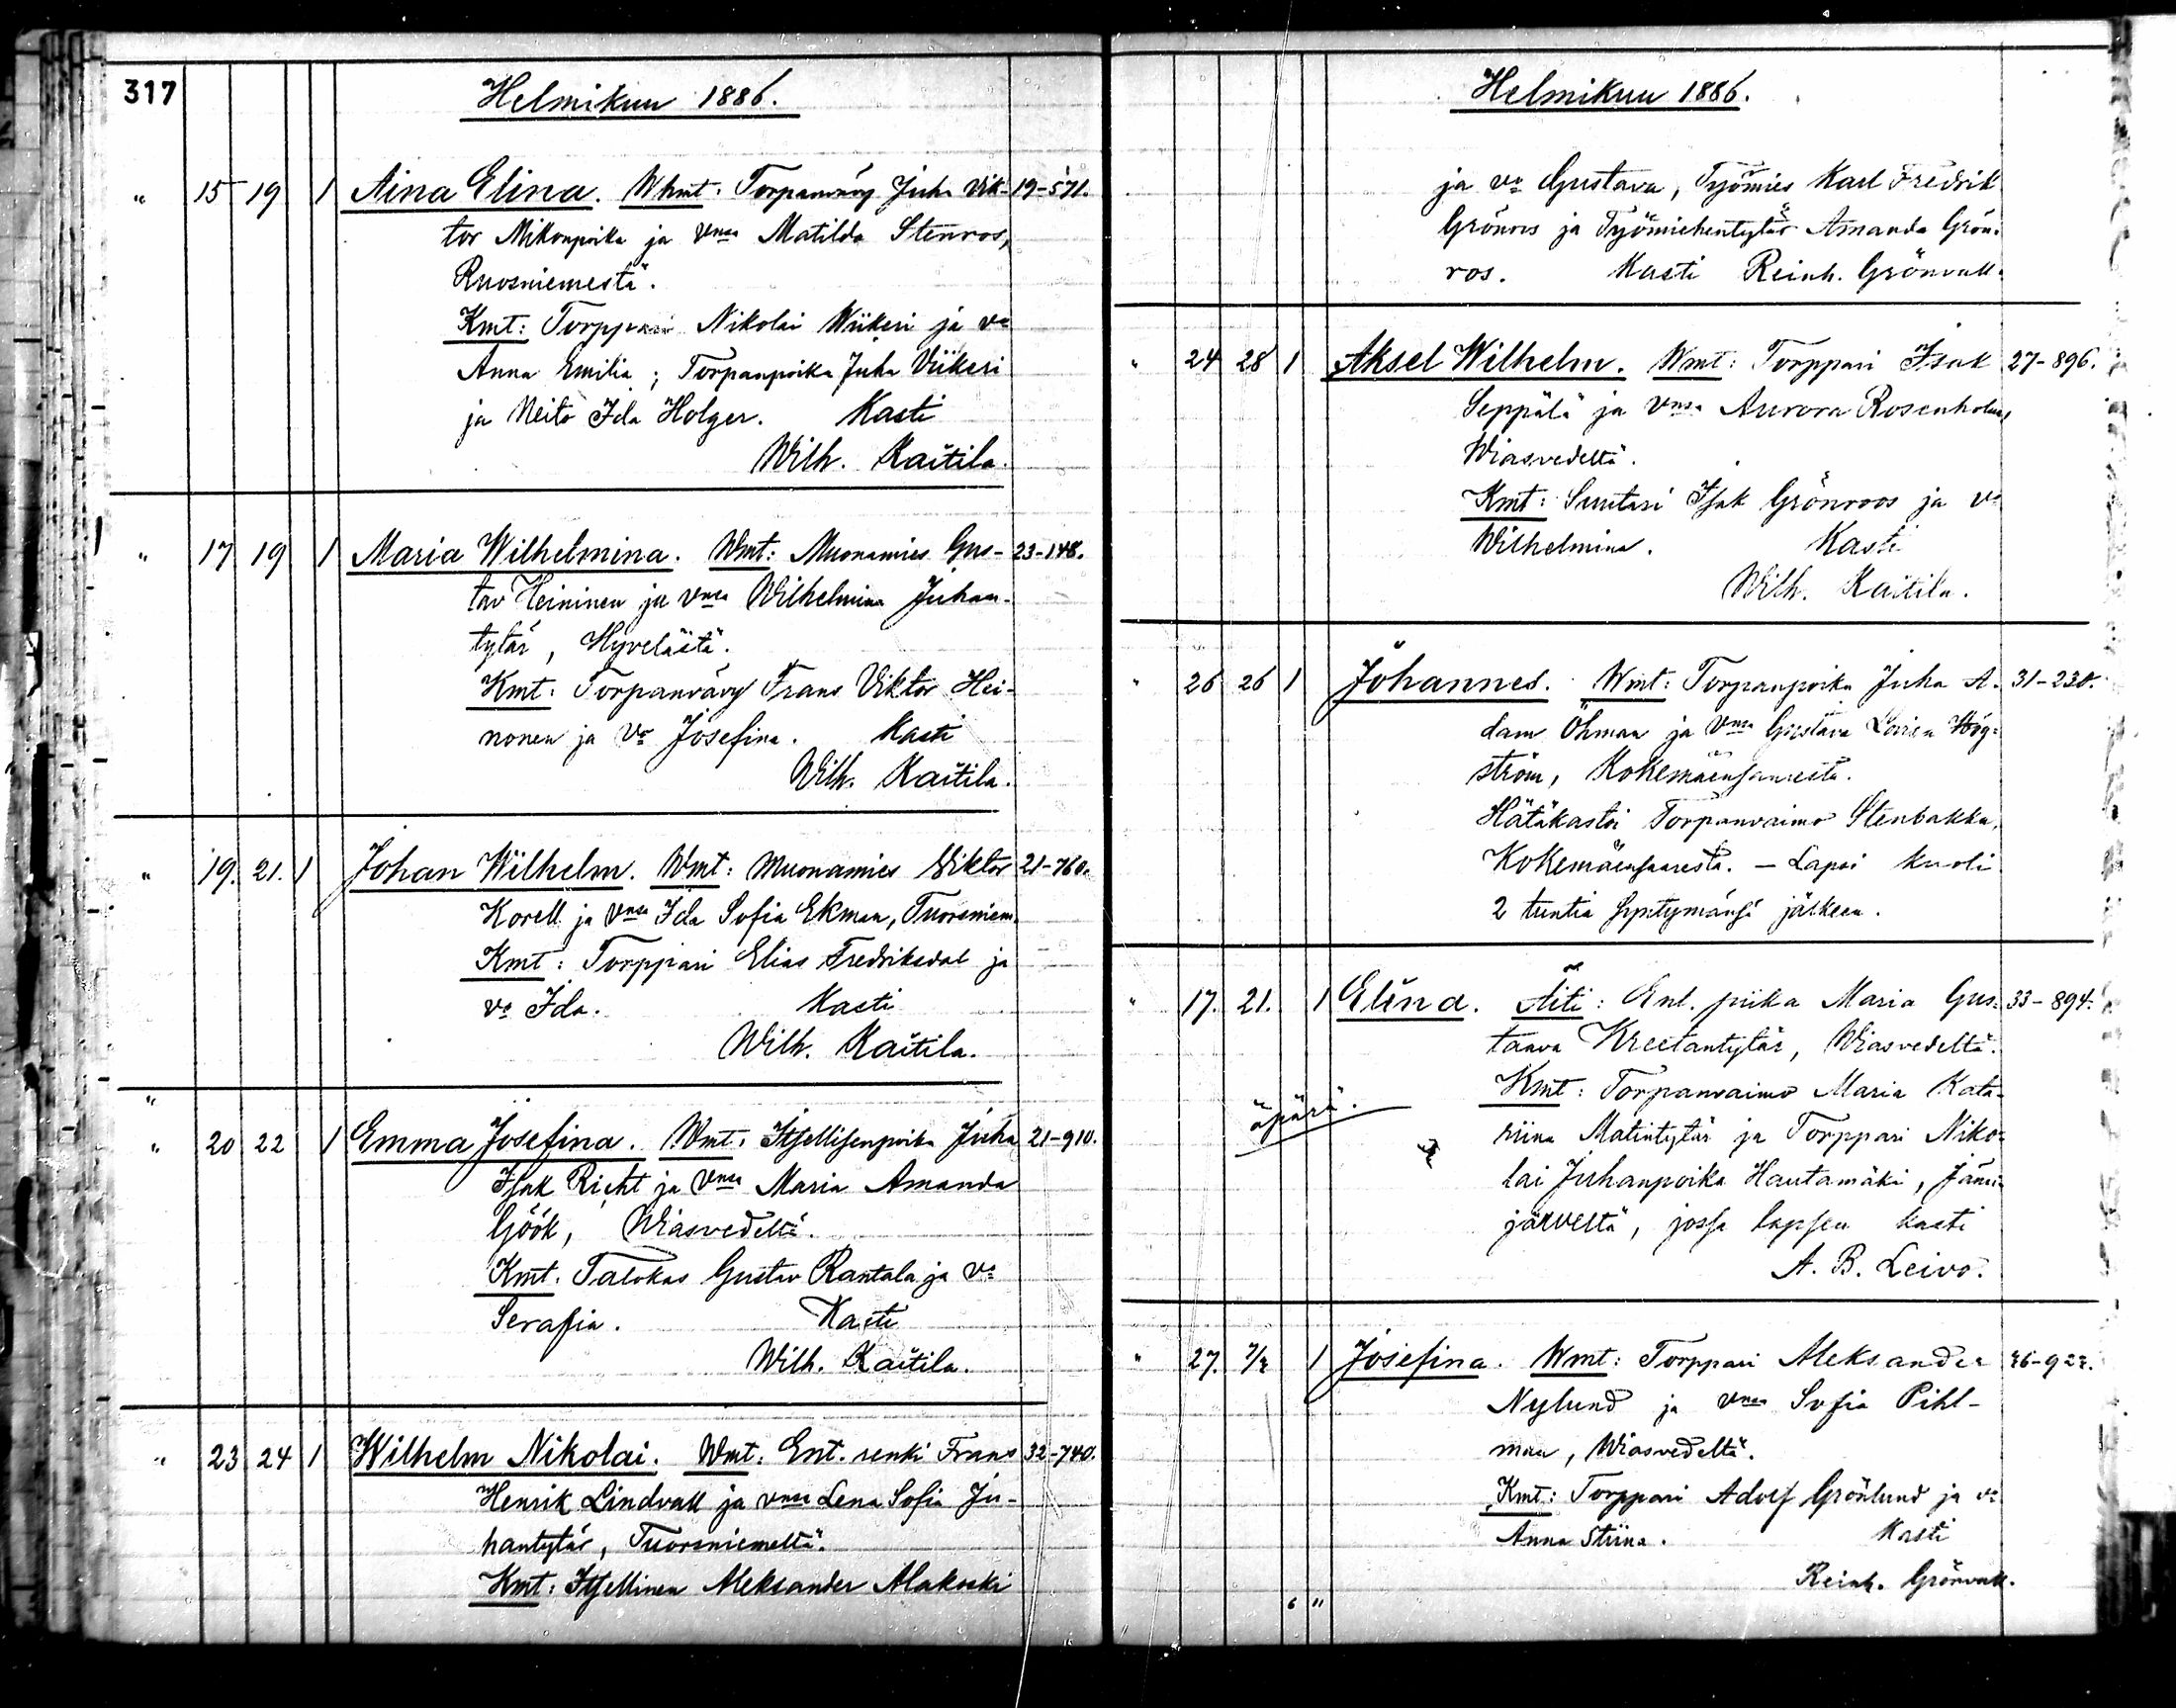 317
Helmikuu 1886.
" 15 19 1 Aina Elina. Whmt: Torpanvävy Juha Vik- 19-571.
tor Mikonpoika ja vmsa Matilda Stenros,
Ruosniemestä.
Kmt: Torppari Nikolai Wiikeri ja vo
Anna Emilia; Torpanpoika Juha Viikeri
ja Neito Ida Holger. Kasti
Wilh. Kaitila.
" 17 19 1 Maria Wilhelmina. Wmt: Muonamies Gus- 23-148.
tav Heininen ja vmsa Wilhelmina Juhan-
tytär, Hyvelästä.
Kmt: Torpanvävy Frans Viktor Hei-
nonen ja vo Josefina. Kasti
Wilh. Kaitila.
" 19. 21. 1 Johan Wilhelm. Wmt: Muonamies Wiktor 21-760.
Korell ja vmsa Ida Sofia Ekman, Tuorsniem.
Kmt: Torppari Elias Fredriksdal ja
vo Ida. Kasti
Wilh. Kaitila.
"
" 20 22 1 Emma Josefina. Wmt: Itsellisenpoika Juha 21-910.
Isak Richt ja vmsa Maria Amanda
Göök, Wiasvedeltä.
Kmt. Talokas Gustav Rantala ja vo
Serafia. Kasti
Wilh. Kaitila.
" 23 24 1 Wilhelm Nikolai. Wmt: Ent. renki Frans 32-740.
Henrik Lindvall ja vmsa Lena Sofia Ju-
hantytär, Tuorsniemeltä.
Kmt: Itsellinen Aleksander Alakoski
Helmikuu 1886.
ja vo Gustava, Työmies Karl Fredrik
Grönros ja Työmiehentytär Amanda Grön-
ros. Kasti Reinh. Grönvall.
" 24 28 1 Aksel Wilhelm. Wmt: Torppari Isak 27-896.
Seppälä ja vmsa Aurora Rosenholm,
Wiasvedeltä.
Kmt: Suutari Isak Grönroos ja vo
Wilhelmina. Kasti
Wilh. Kaitila.
" 26 26 1 Johannes. Wmt: Torpanpoika Juha A- 31-230.
dam Öhman ja vmsa Gustava Lovisa Hög-
ström, Kokemäensaaresta.
Hätäkastoi Torpanvaimo Stenbakka,
Kokemäensaaresta. — Lapsi kuoli
2 tuntia syntymänsä jälkeen.
" 17. 21. 1 Elina. Äiti: Ent. piika Maria Gus- 33-894.
taava Kreetantytär, Wiasvedeltä.
Kmt: Torpanvaimo Maria Kata-
äpärä.
riina Matintytär ja Torppari Niko-
lai Juhanpoika Hautamäki, Jämi-
järveltä, jossa lapsen kasti
A. B. Leivo.
" 27. 7/3 1 Josefina. Wmt: Torppari Aleksander 36-923.
Nylund ja vmsa Sofia Pihl-
man, Wiasvedeltä.
Kmt: Torppari Adolf Grönlund ja vo
Anna Stiina. Kasti
Reinh. Grönvall.
6 11